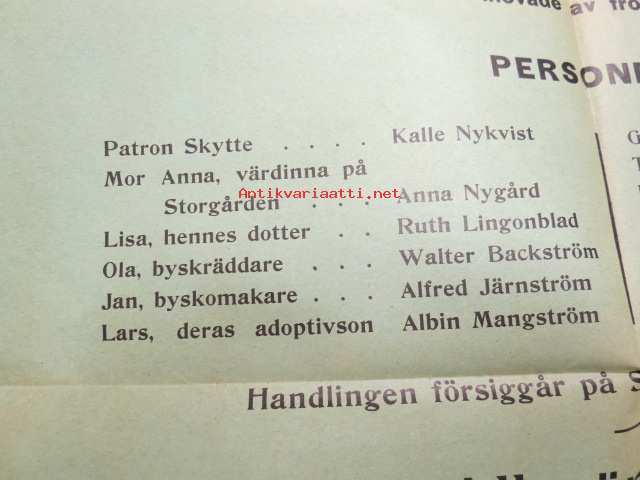 av
PERSON
Patron Skytte . . . . Kalle Nykvist
Mor Anna, värdinna på
Antikvariaatti.net
Storgården . . . Anna Nygård
Lisa, hennes dotter . . Ruth Lingonblad
Ola, byskräddare . . . Walter Backström
Jan, byskomakare . . . Alfred Järnström
Lars, deras adoptivson Albin Mangström
Handlingen försiggår på S